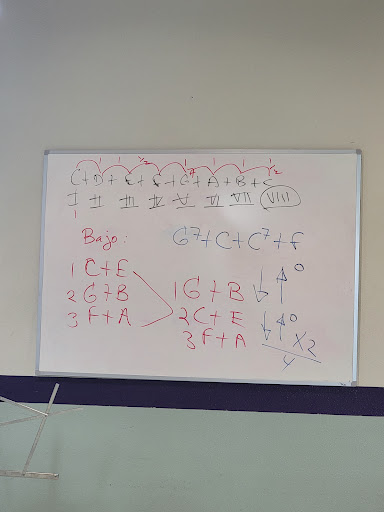 1 1 ½ 1 1 1 ½
C+D+E+F+G+A+B+C
I II III IV V VI VII VIII
1
Bajo: G7+C+C7+F
1 C+E
2 G+B
3 F+A
1G+B ↓↑o
2C+E
3F+A ↓↑o X2
4